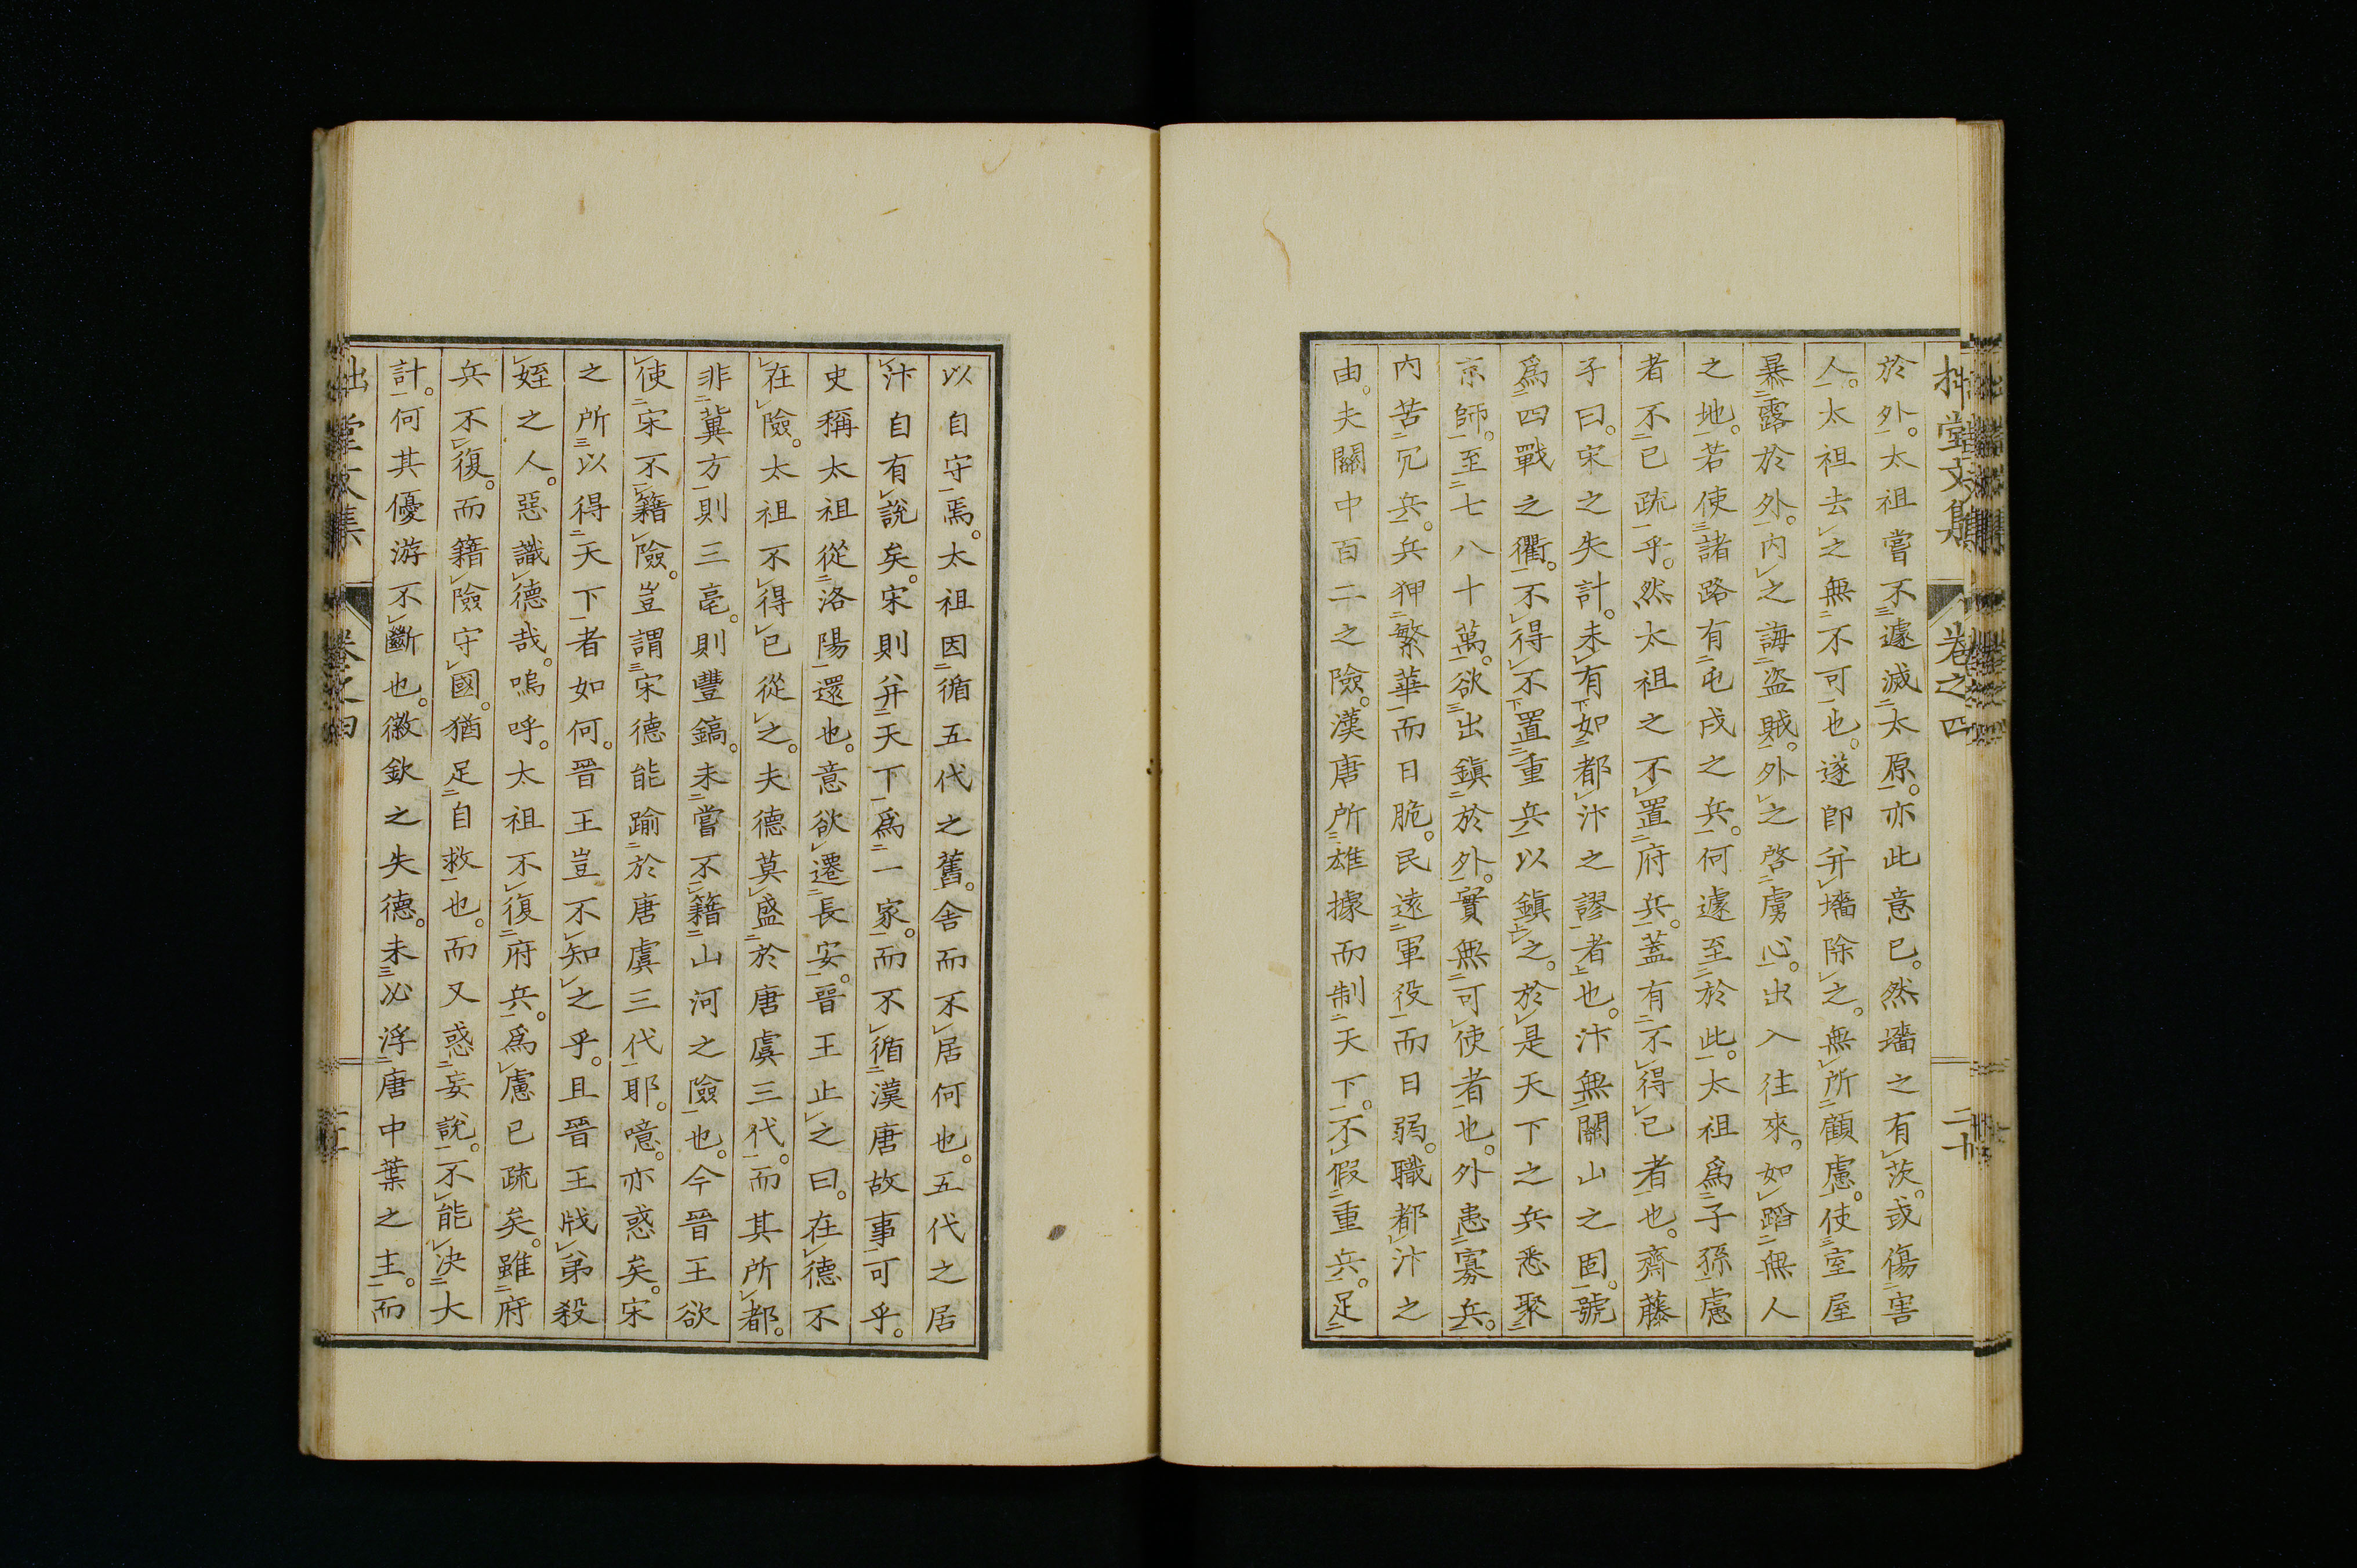 拙堂文集 卷之四 二十
於外。太祖嘗不遽滅太原。亦此意已。然墻之有茨。或傷害
人。太祖去之無不可也。遂卽幷墻除之。無所顧慮。使室屋
暴露於外。内之誨盗賊。外之啓虜心。出入往來。如蹈無人
之地。若使諸路有屯戍之兵。何遽至於此。太祖爲子孫慮
者不已疏乎。然太祖之不置府兵。蓋有不得已者也。齋藤
子曰。宋之失計。未有如都汴之謬者也。汴無關山之固。號
爲四戰之衢。不得不置重兵以鎭之。於是天下之兵悉聚
京師。至七八十萬。欲出鎭於外。實無可使者也。外患寡兵。
内苦冗兵。兵狎繁華而日脆。民遠軍役而日弱。職都汴之
由。夫關中百二之險。漢唐所雄據而制天下。不假重兵。足
以自守焉。太祖因循五代之舊。舍而不居何也。五代之居
汴自有說矣。宋則幷天下爲一家。而不循漢唐故事可乎。
史稱太祖從洛陽還也。意欲遷長安。晉王止之曰。在德不
在險。太祖不得已從之。夫德莫盛於唐虞三代。而其所都。
非冀方則三亳。則豐鎬。未嘗不籍山河之險也。今晉王欲
使宋不籍險。豈謂宋德能踰於唐虞三代耶。噫。亦惑矣。宋
之所以得天下者如何。晉王豈不知之乎。且晉王戕弟殺
姪之人。惡識德哉。嗚呼。太祖不復府兵。爲慮已疏矣。雖府
兵不復。而籍險守國。猶足自救也。而又惑妄說。不能決大
計。何其優游不斷也。徽欽之失德。未必浮唐中葉之主。而
拙堂文集 卷之四